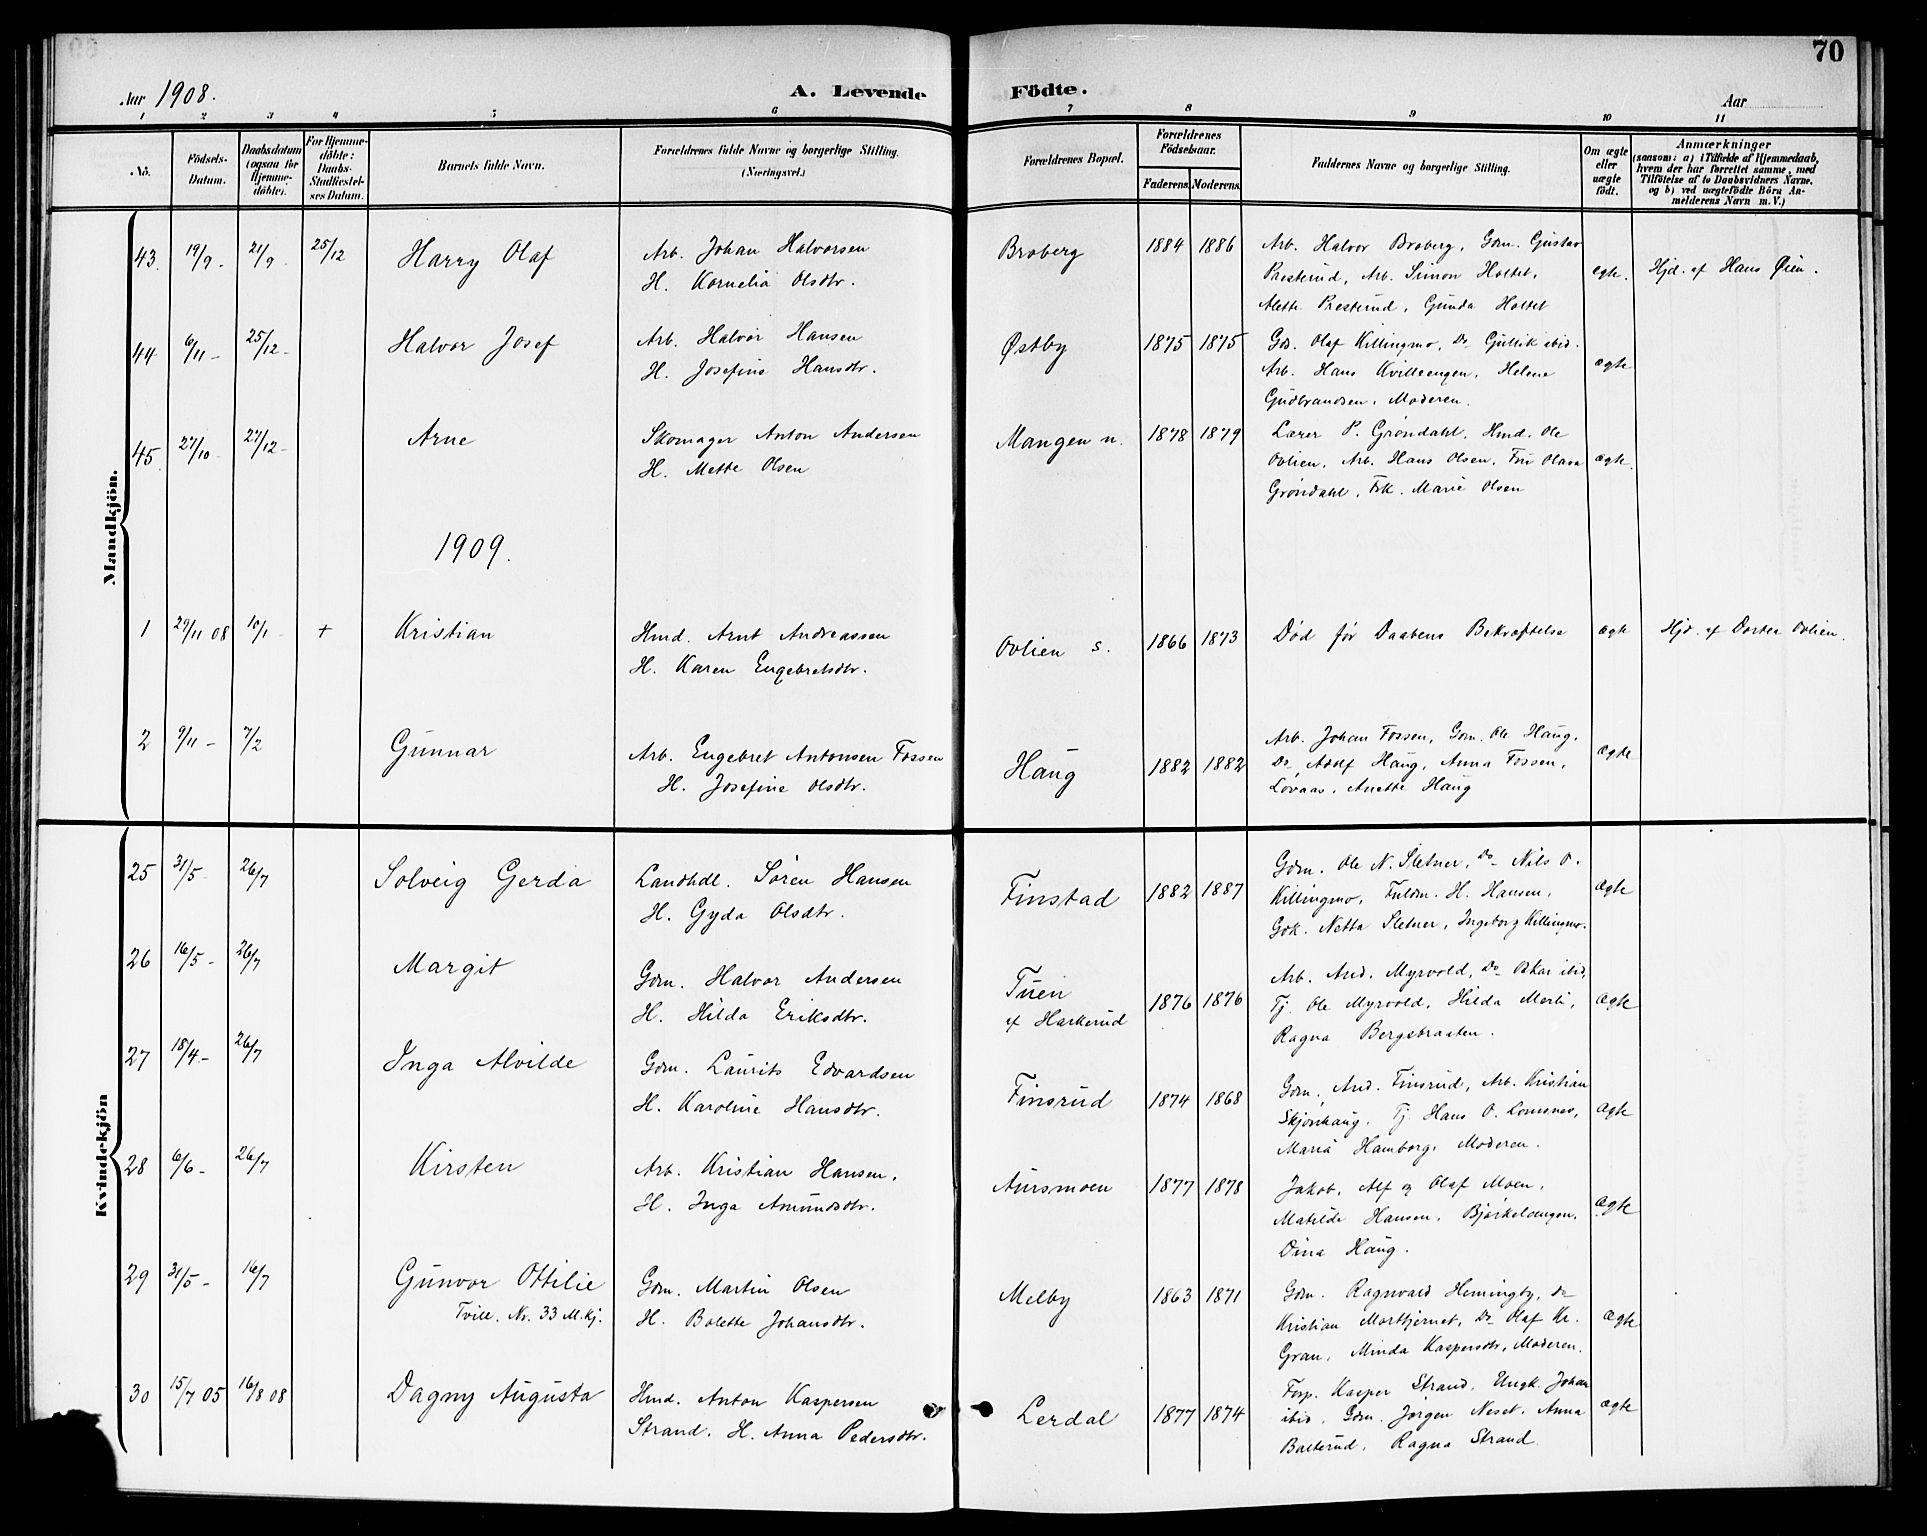 70
Aar 1908.
A. Levende Födte.
Aar
1 2 3 4 5 6 7 8 9 10 11
No.
Födsels-
Datum.
Daabsdatum
(ogsaa for
Hjemme-
döbte).
For Hjemme-
döbte:
Daabs-
Stadfæstel-
ses Datum.
Barnets fulde Navn.
Forældrenes fulde Navne og borgerlige Stilling.
(Næringsvei.)
Forældrenes Bopæl.
Forældrenes
Födselsaar.
Faderens. Moderens.
Faddernes Navne og borgerlige Stilling.
Om ægte
eller
uægte
födt.
Anmærkninger
(saasom: a) i Tilfælde af Hjemmedaab,
hvem der har forrettet samme, med
Tilföielse af to Daabsvidners Navne,
og b) ved uægtefödte Börn An-
melderens Navn m. V.)
Mandkjön.
43. 19/9 - 21/9 - 25/12 Harry Olaf
Arb. Johan Halvorsen
H. Kornelia Olsdtr.
Broberg 1884 1886
Arb. Halvor Broberg, Gdm. Gustav
Presterud, Arb. Simon Holtet,
Alette Presterud, Gunda Holtet
ægte. Hjd. af Hans Øien.
44 6/11 - 25/12 - Halvor Josef
Arb. Halvor Hansen
H. Josefine Hansdtr.
Østby 1875 1875
Gd. Olaf Killingmo, Do Gullik ibid.
Arb. Hans Kvilleengen, Helene
Gudbrandsen, Moderen.
ægte
45. 27/10 - 27/12 - Arne
Skomager Anton Andersen
H. Mette Olsen
Mangen n. 1878 1879
Lærer P. Grøndahl, Hmd. Ole
Ovlien, Arb. Hans Olsen, Fru Olava
Grøndahl, Frk. Marie Olsen
ægte.
1909.
1 29/11 08 10/1 - + Kristian
Hmd. Arnt Andreassen
H. Karen Engebretsdtr.
Ovlien s. 1866 1873
Død før Daabens Bekræftelse
ægte Hjd. af Dortea Ovlien.
2 9/11 - 7/2 Gunnar
Arb. Engebret Antonsen Fossen
H. Josefine Olsdtr.
Haug 1882 1882
Arb. Johan Fossen, Gdm. Ole Haug,
Do Adolf Haug, Anna Fossen,
Lovaas, Anette Haug
ægte
Kvindekjön
25 31/5 - 26/7 Solveig Gerda
Landhdl. Søren Hansen
H. Gyda Olsdtr.
Finstad 1882 1887
Gdm. Ole N. Sletner, Do Nils O.
Killingmo, Fuldm. H. Hansen,
Gdk. Netta Sletner, Ingeborg Killingmo.
ægte
26 16/5 - 26/7 Margit
Gdm. Halvor Andersen
H. Hilda Eriksdtr.
Tuen
af Harkerud
1876 1876
Arb. And. Myrvold, Do Oskar ibid,
Tj. Ole Myrvold, Hilda Merli,
Ragna Bergsbraaten.
ægte
27 18/4 - 26/7 Inga Alvilde
Gdm. Laurits Edvardsen
H. Karoline Hansdtr.
Finsrud 1874 1868
Gdm. And. Finsrud, Arb. Kristian
Skjønhaug, Tj. Hans O. Lomsnes,
Maria Hamborg, Moderen.
ægte
28 6/6 - 26/7 Kirsten
Arb. Kristian Hansen,
H. Inga Amundsdtr.
Aursmoen 1877 1878
Jakob, Alf og Olaf Moen,
Matilde Hansen, Bjørkelangen,
Dina Haug.
ægte
29 31/5 - 16/7 Gunvor Ottilie
Tvill. Nr. 33 M.kj.
Gdm. Martin Olsen
H. Bolette Johansdtr.
Melby 1863 1871
Gdm. Ragnvald Hemingby, do
Kristian Morttjernet, Do Olaf Kr.
Gran, Minda Kaspersdtr, Moderen.
ægte
30 15/7 05 16/8 08 Dagny Augusta
Hmd. Anton Kaspersen
Strand. H. Anna Pedersdtr.
Lerdal 1877 1874
Forp. Kasper Strand, Ungk. Johan
ibid, Gdm. Jørgen Neset, Anna
Balterud, Ragna Strand.
ægte